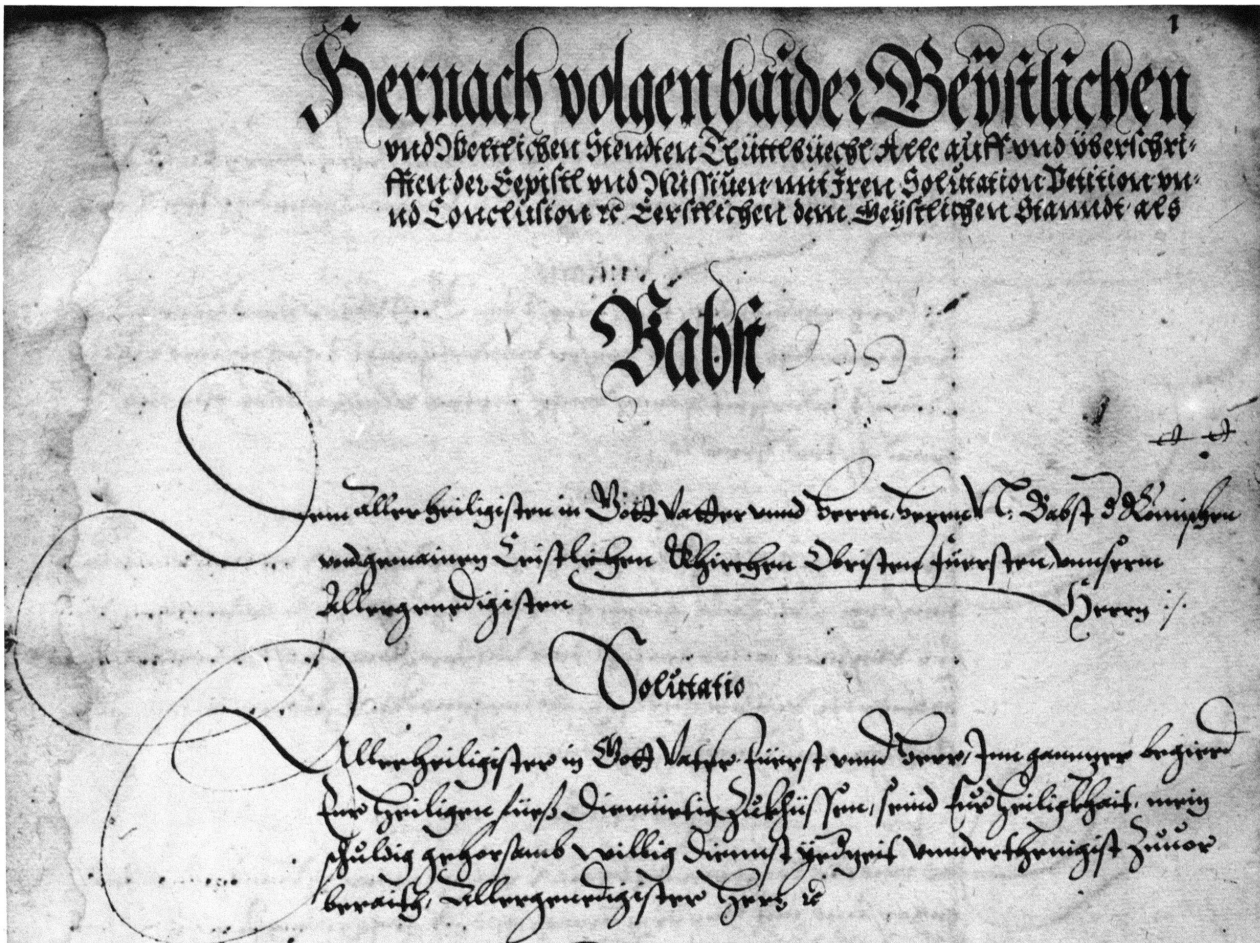 1
Hernach volgen baider Geÿstlichen
vnd Weltlichen Stendten Tÿttlbüechl Alle auff vnd vberschri-
fften der Eepistl vnd Missiuen mit Jren Soluttation Petition vn-
nd Conclusion ꝛc Eerstlichen dem Geÿstlichen Stanndt als
Babst
Dem Allerheiligisten in Gott Vatter vnnd herrn, herrn N. Babst d Römischen
vnd gemainen Cristlichen Khirchen Obristen Fürsten vnnserm
Allergenedigisten Herrn
Soluttatio
Allerheiligister in Gott Vater Fürst vnnd herr, Inn gannzer begierd
Eur heiligen füeß diemüetig Zukhüssen, seind Eur heiligkhait, mein
schuldig gehorsamb willig diennst yedzeit vnnderthenigist Zuuor
beraith, Allergenedigister Herr ꝛc